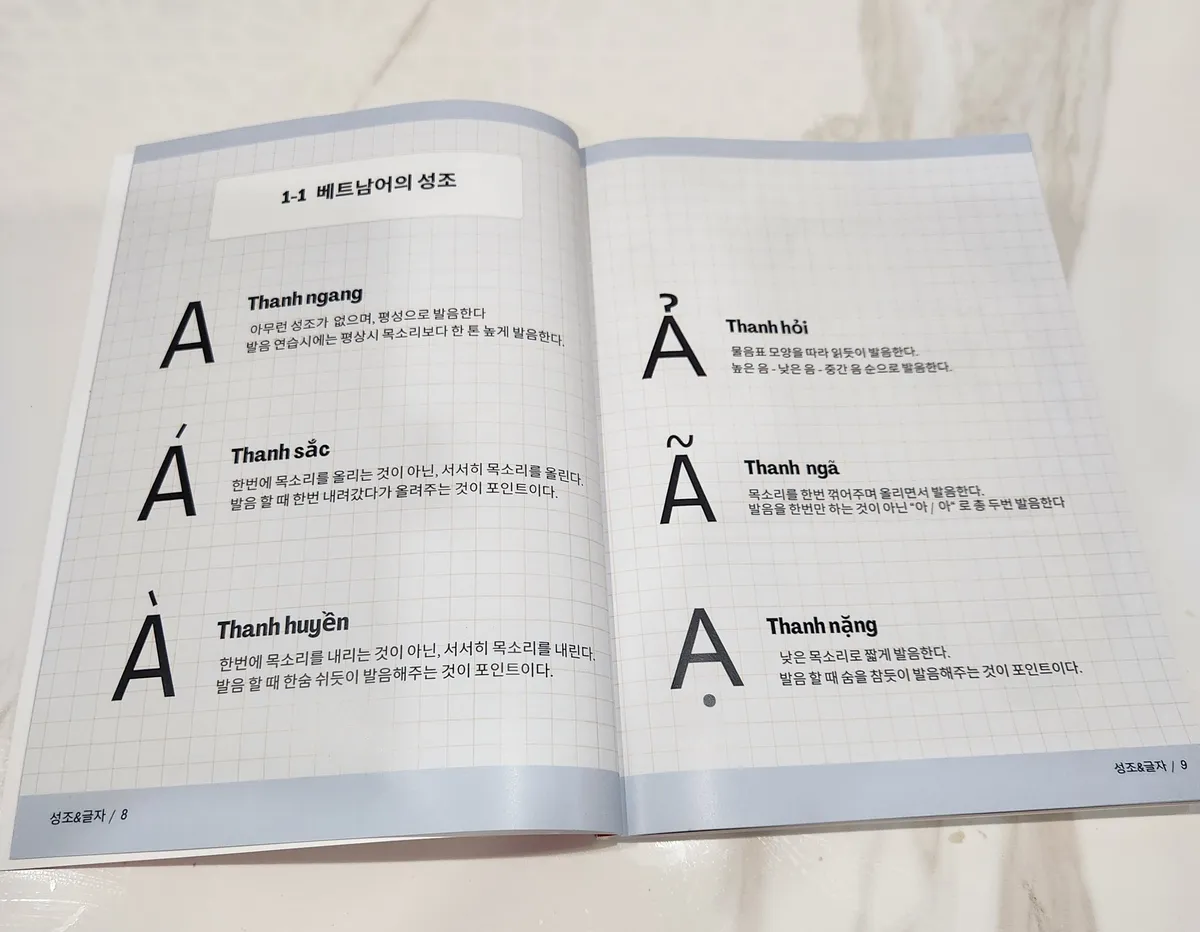 1-1 베트남어의 성조
A
Thanh ngang
아무런 성조가 없으며, 평성으로 발음한다
발음 연습시에는 평상시 목소리보다 한 톤 높게 발음한다.
Á
Thanh sắc
한번에 목소리를 올리는 것이 아닌, 서서히 목소리를 올린다.
발음 할 때 한번 내려갔다가 올려주는 것이 포인트이다.
À
Thanh huyền
한번에 목소리를 내리는 것이 아닌, 서서히 목소리를 내린다.
발음 할 때 한숨 쉬듯이 발음해주는 것이 포인트이다.
성조&글자 / 8
Ả
Thanh hỏi
물음표 모양을 따라 읽듯이 발음한다.
높은 음 - 낮은 음 - 중간 음 순으로 발음한다.
Ã
Thanh ngã
목소리를 한번 꺾어주며 올리면서 발음한다.
발음을 한번만 하는 것이 아닌 "아 / 아" 로 총 두번 발음한다
Ạ
Thanh nặng
낮은 목소리로 짧게 발음한다.
발음 할 때 숨을 참듯이 발음해주는 것이 포인트이다.
성조&글자 / 9